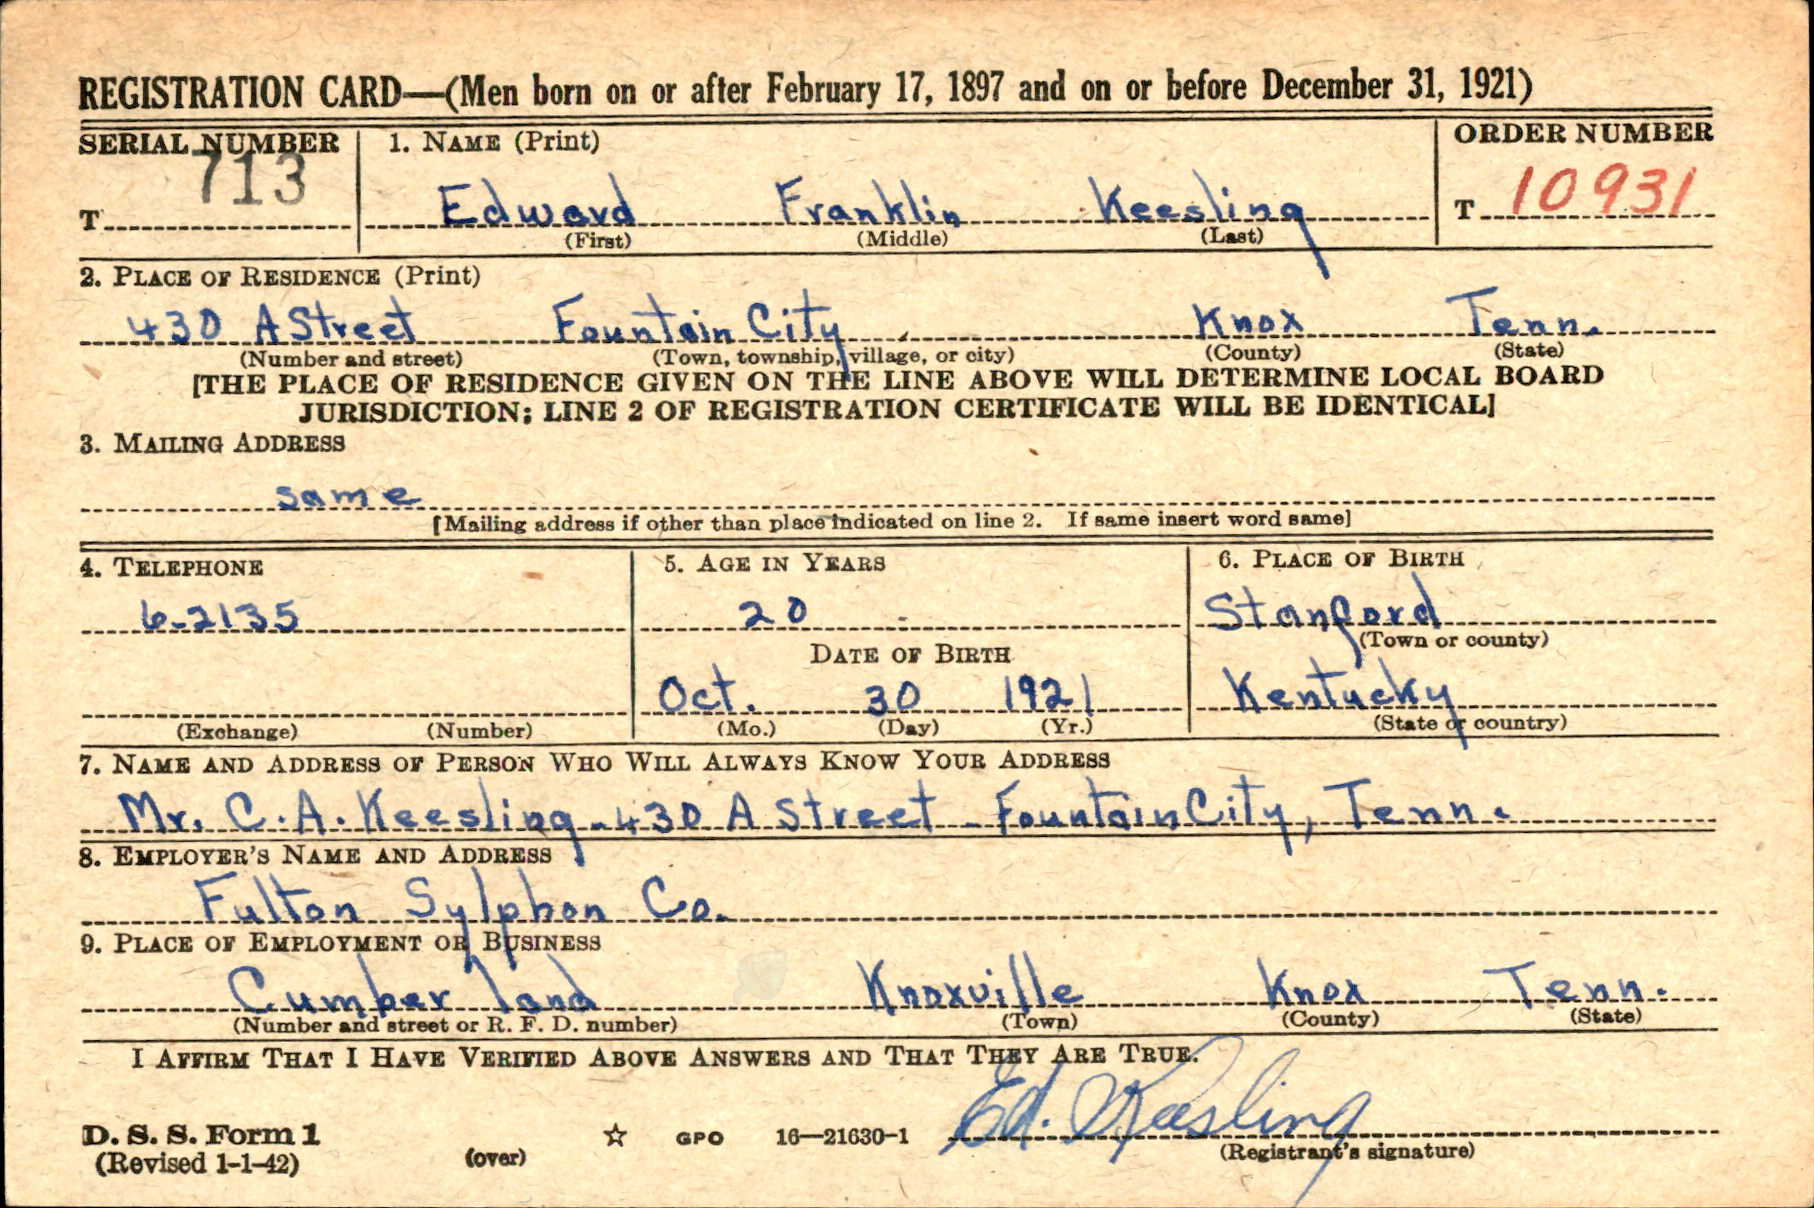 REGISTRATION CARD—(Men born on or after February 17, 1897 and on or before December 31, 1921)
SERIAL NUMBER 1. NAME (Print) ORDER NUMBER
T 713 Edward Franklin Keesling T 10931
(First) (Middle) (Last)
2. PLACE OF RESIDENCE (Print)
430 A Street Fountain City Knox Tenn.
(Number and street) (Town, township, village, or city) (County) (State)
[THE PLACE OF RESIDENCE GIVEN ON THE LINE ABOVE WILL DETERMINE LOCAL BOARD
JURISDICTION; LINE 2 OF REGISTRATION CERTIFICATE WILL BE IDENTICAL]
3. MAILING ADDRESS
same
[Mailing address if other than place indicated on line 2. If same insert word same]
4. TELEPHONE 5. AGE IN YEARS 6. PLACE OF BIRTH
6-2135 20 Stanford
(Town or county)
DATE OF BIRTH
Oct. 30 1921 Kentucky
(Exchange) (Number) (Mo.) (Day) (Yr.) (State or country)
7. NAME AND ADDRESS OF PERSON WHO WILL ALWAYS KNOW YOUR ADDRESS
Mr. C. A. Keesling - 430 A Street - Fountain City, Tenn.
8. EMPLOYER'S NAME AND ADDRESS
Fulton Sylphon Co.
9. PLACE OF EMPLOYMENT OR BUSINESS
Cumberland Knoxville Knox Tenn.
(Number and street or R. F. D. number) (Town) (County) (State)
I AFFIRM THAT I HAVE VERIFIED ABOVE ANSWERS AND THAT THEY ARE TRUE.
Ed. Keesling
D. S. S. Form 1 (Registrant's signature)
(Revised 1-1-42) (over) ☆ GPO 16—21630-1